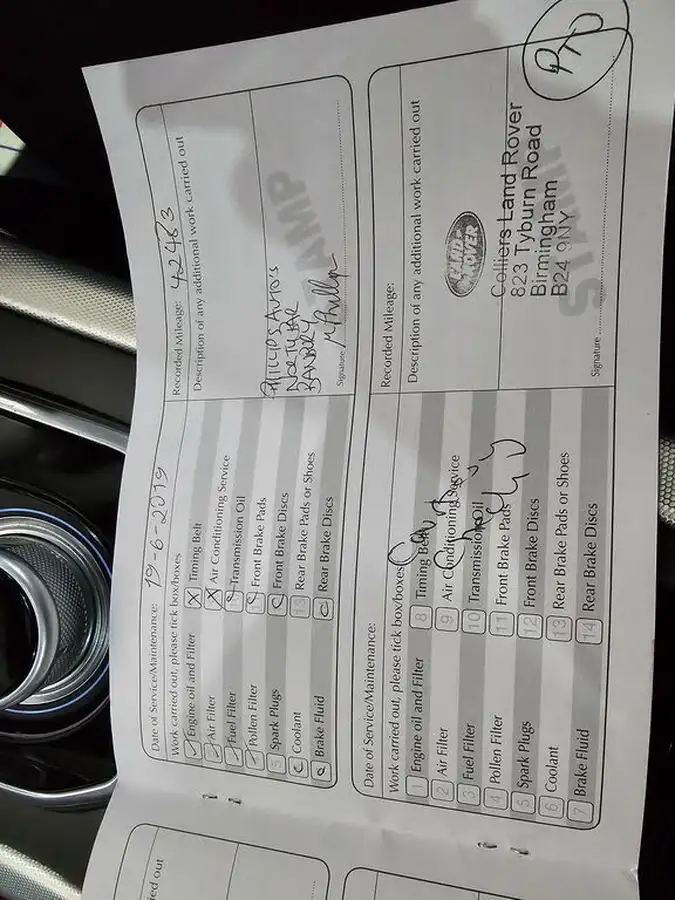 PTO
Date of Service/Maintenance: 19-6-2019
Work carried out, please tick box/boxes
Engine oil and Filter
Air Filter
Fuel Filter
Pollen Filter
5 Spark Plugs
Coolant
Brake Fluid
Timing Belt
Air Conditioning Service
Transmission Oil
Front Brake Pads
Front Brake Discs
13 Rear Brake Pads or Shoes
Rear Brake Discs
Recorded Mileage: 42483
Description of any additional work carried out
PHILLIPS AUTO'S
NORTH BAR
BANBURY
STAMP
Signature M Phillips
Date of Service/Maintenance:
Work carried out, please tick box/boxes
1 Engine oil and Filter
2 Air Filter
3 Fuel Filter
4 Pollen Filter
5 Spark Plugs
6 Coolant
7 Brake Fluid
8 Timing Belt
9 Air Conditioning Service
10 Transmission Oil
11 Front Brake Pads
12 Front Brake Discs
13 Rear Brake Pads or Shoes
14 Rear Brake Discs
Recorded Mileage:
Description of any additional work carried out
LAND-
ROVER
Colliers Land Rover
823 Tyburn Road
Birmingham
B24 9NY
STAMP
Signature
ied out